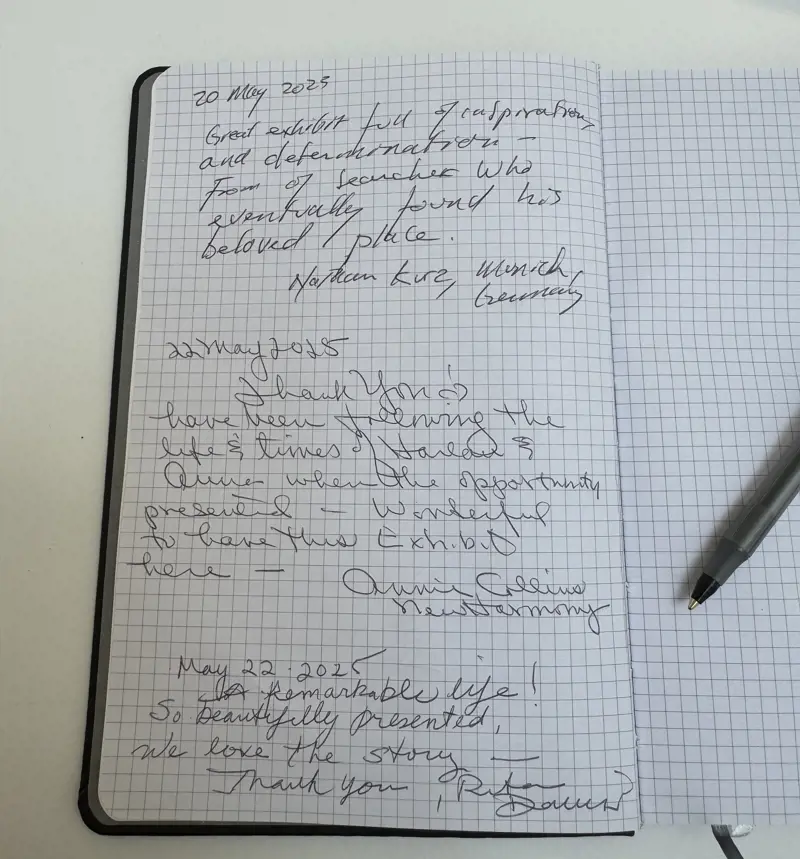 20 May 2025
Great exhibit full of inspiration,
and determination –
From of searcher who
eventually found his
beloved place.
Nathan Kurz, Munich,
Germany
22 May 2025
Thank You
have been following the
life & times of Harlan &
Anna when the opportunity
presented – Wonderful
to have this Exhibit
here —
Annie Collins
New Harmony
May 22. 2025
A Remarkable life!
So beautifully presented,
we love the story —
Thank you,